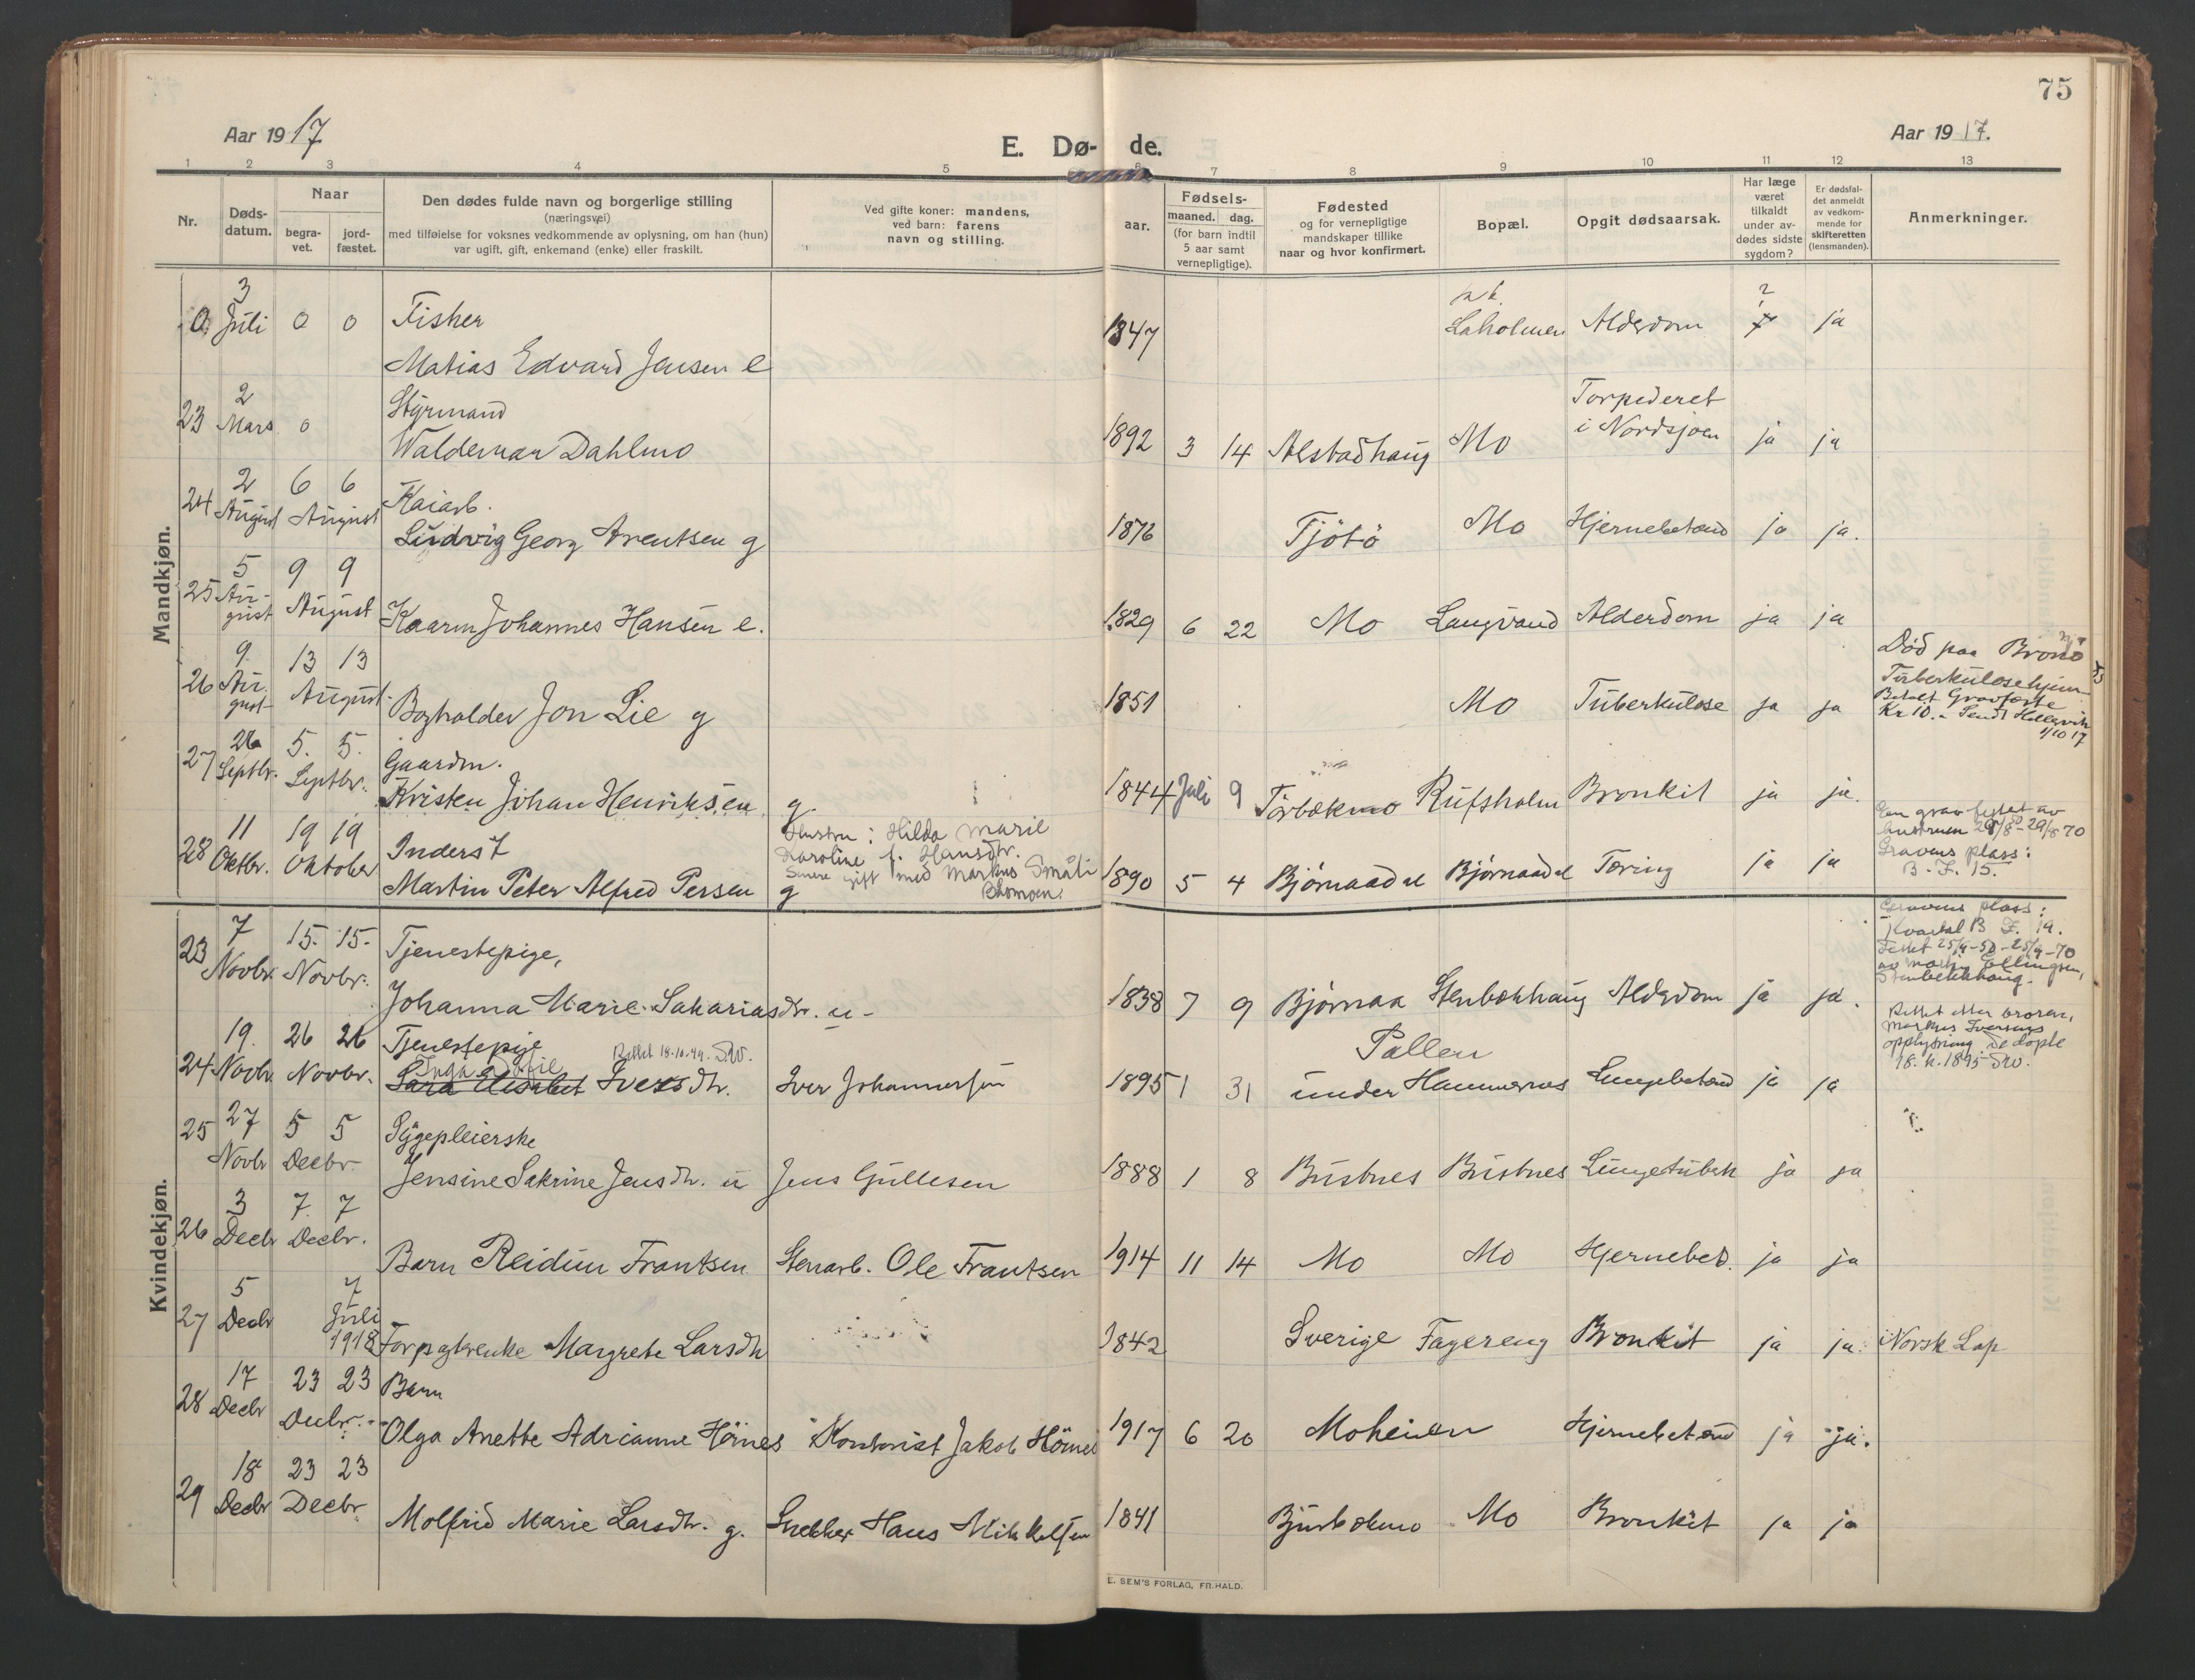 75
Aar 1917
E. Dø- de.
Aar 1917.
1 2 3 4 5 6 7 8 9 10 11 12 13
Nr.
Døds-
datum.
Naar
begra-
vet.
jord-
fæstet.
Den dødes fulde navn og borgerlige stilling
(næringsvei)
med tilføielse for voksnes vedkommende av oplysning, om han (hun)
var ugift, gift, enkemand (enke) eller fraskilt.
Ved gifte koner: mandens,
ved barn: farens
navn og stilling.
aar.
Fødsels-
maaned. dag.
(for barn indtil
5 aar samt
vernepligtige).
Fødested
og for vernepligtige
mandskaper tillike
naar og hvor konfirmert.
Bopæl.
Opgit dødsaarsak.
Har læge
været
tilkaldt
under av-
dødes sidste
sygdom?
Er dødsfal-
det anmeldt
av vedkom-
mende for
skifteretten
(lensmanden).
Anmerkninger.
Mandkjøn.
0 3 Juli 0 0 Fisker
Matias Edvard Jensen e 1847 Laholmen Alderdom ? ja
23 2 Mars 0 Styrmand
Waldemar Dahlmo 1892 3 14 Alstadhaug Mo Torpederet
i Nordsjøen ja ja
24 2 August 6 6 August Kaiarb.
Ludvig Georg Arentsen g 1876 Tjötö Mo Hjernebetænd ja ja.
25 5 Au-
gust 9 9 August
Kaarm Johannes Hansen e. 1829 6 22 Mo Langvand Alderdom ja ja
26 9. Au-
gust 13 13 August
Bogholder Jon Lie g 1851 Mo Tuberkulose ja ja
Död paa Bronö
Tuberkulosehjem
Betalt Gravfæste
Kr 10.- Sendt
1/10 17
27 Septbr. 5. 5. Septbr. Gaardm.
Kristen Johan Henriksen g 1844 Juli 9 Rufsholm Bronkit ja ja.
28 11 Oktbr. 19 19 Oktober Inderst
Martin Peter Alfred Persen g
Hustru: Hilda Marie
Karoline f. Hansdtr.
Senere gift med Markus Småli
1890 5 4 Bjørnaadal Bjørnaadal Tæring ja ja
Een grav festet av
hustruen - 29/8 70
Gravens plass:
B. F. 15.
Kvindekjøn.
23 7 Novbr. 15. 15. Novbr. Tjenestepige,
Johanna Marie Sakariasdtr. u- 1838 7 9 Bjørnaa Stenbækhaug Alderdom ja ja.
Gravens plass:
Kvartal B F. 19.
Festet 25/4-50-25/4-70
av Ellingsen,
Stenbekkhaug.
24 19. Novbr 26 26 Novbr. Tjenestepige
Rettet 18.10.49.
Sara Elisabet Iversdtr. Iver Johannessen 1895 1 31 Pallen
under Hammernes Lungebetænd ja ja
Rettet etter broren,
Markus Iversens
opplysning. Se döpte
18. 1895
25 27 Novbr 5 5 Decbr. Sygepleierske
Jensine Sakrine Jensdtr. u Jens Gullesen 1888 1 8 Bustnes Bustnes Lungetuberk ja ja
26 3 Decbr 7. 7 Decbr.
Barn Reidun Frantsen Stenarb. Ole Frantsen 1914 11 14 Mo Mo Hjernebet. ja ja
27 5 Decbr 7 Juli
1918 Forpgtenke Margrete Larsdtr 1842 Sverige Fagereng Bronkit ja ja Norsk Lap
28 17 Decbr 23 23 Decbr. Barn
Olga Anette Adrianne Hörnes Kontorist Jakob Hörnes 1917 6 20 Moheien Hjernebetænd ja ja.
29 18 Decbr 23 23 Decbr.
Molfrid Marie Larsdtr. g. Snekker Hans Mikkelsen 1841 Mo Bronkit ja ja
E. SEM'S FORLAG, FR.HALD.